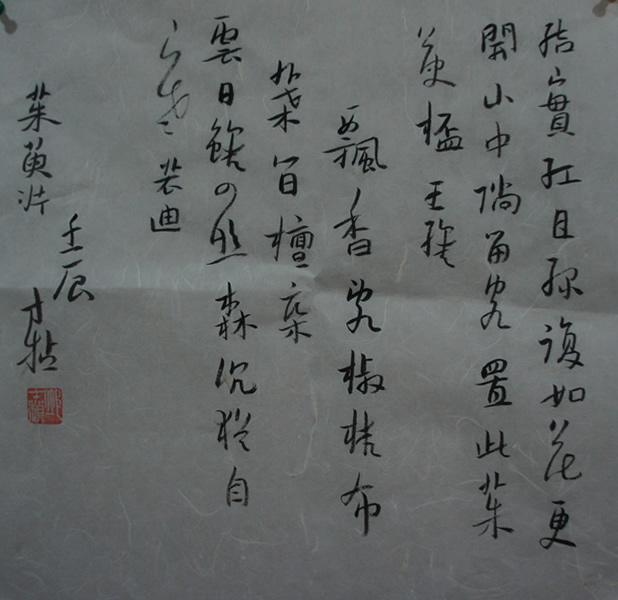 結實紅且綠復如花更
開山中倘留客置此茱
萸杯王維
飄香亂椒桂布
葉間檀欒
雲日雖回照森沉猶自
寒裴迪
茱萸沜
壬辰